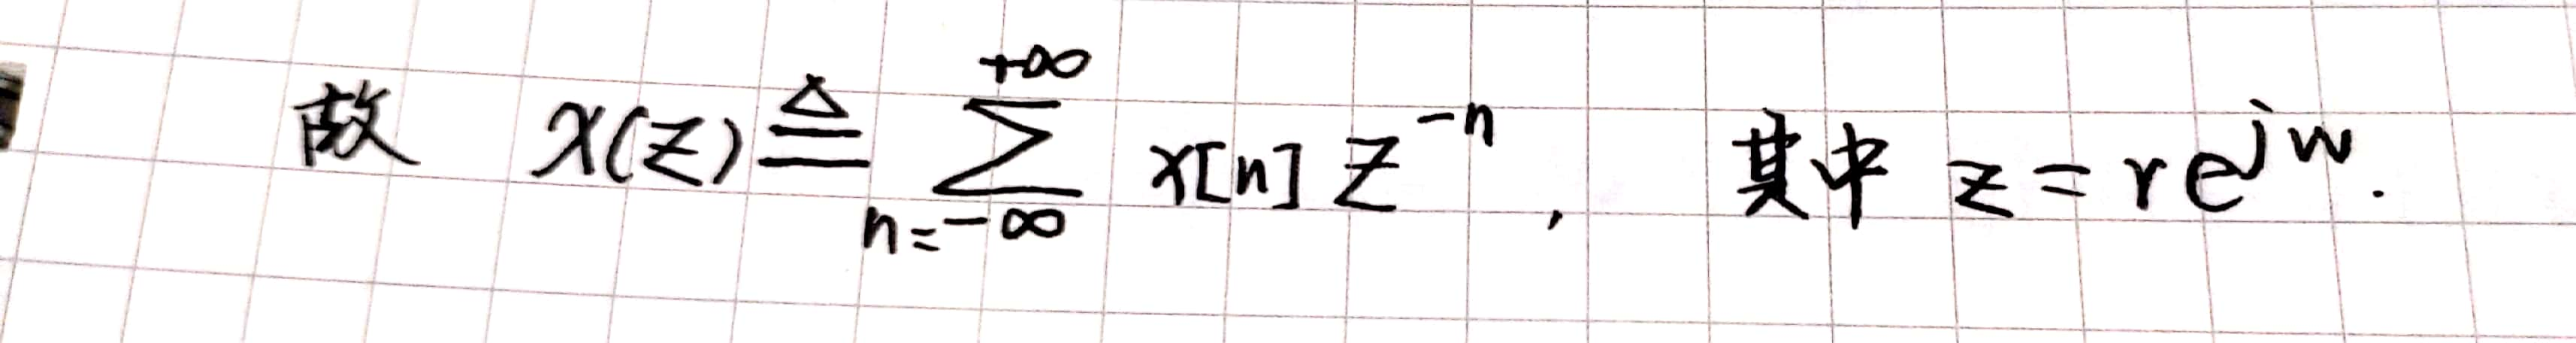 故 X(z) ≜ \sum_{n=-∞}^{+∞} x[n] z^{-n}, 其中 z = re^{jw}.